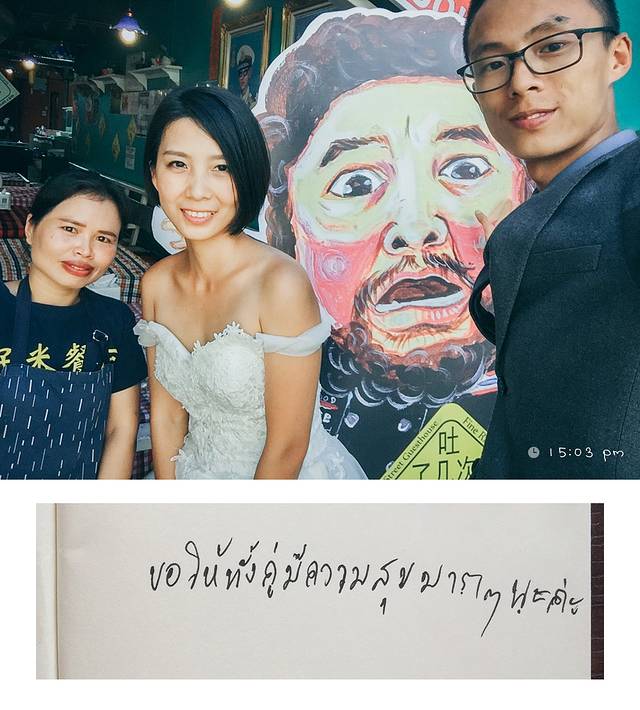 米餐
15:03 pm
Street Guesthouse
吐
了几次
ขอให้ทั้งคู่มีความสุขมากๆนะค่ะ